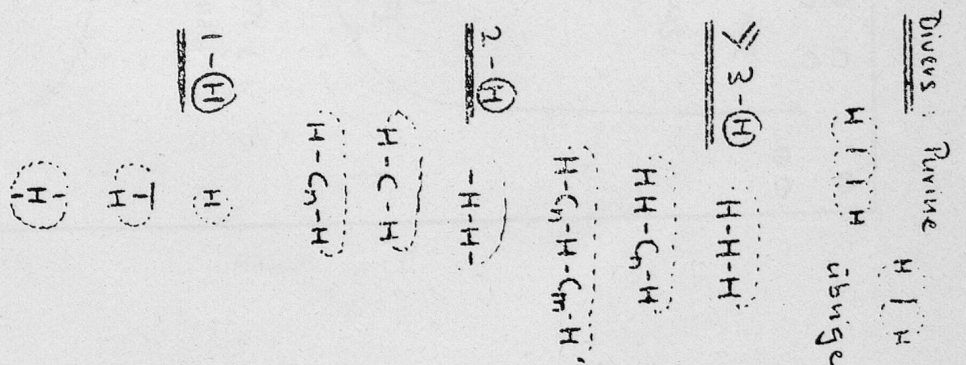 Divers Purine
H | H
H | | H
übrige
≥ 3 - H
H-H-H
H H-Cn-H
H-Cn-H-Cm-H
2 - H
-H-H-
H-C-H
H-Cn-H
1 - H
H
H
-H-